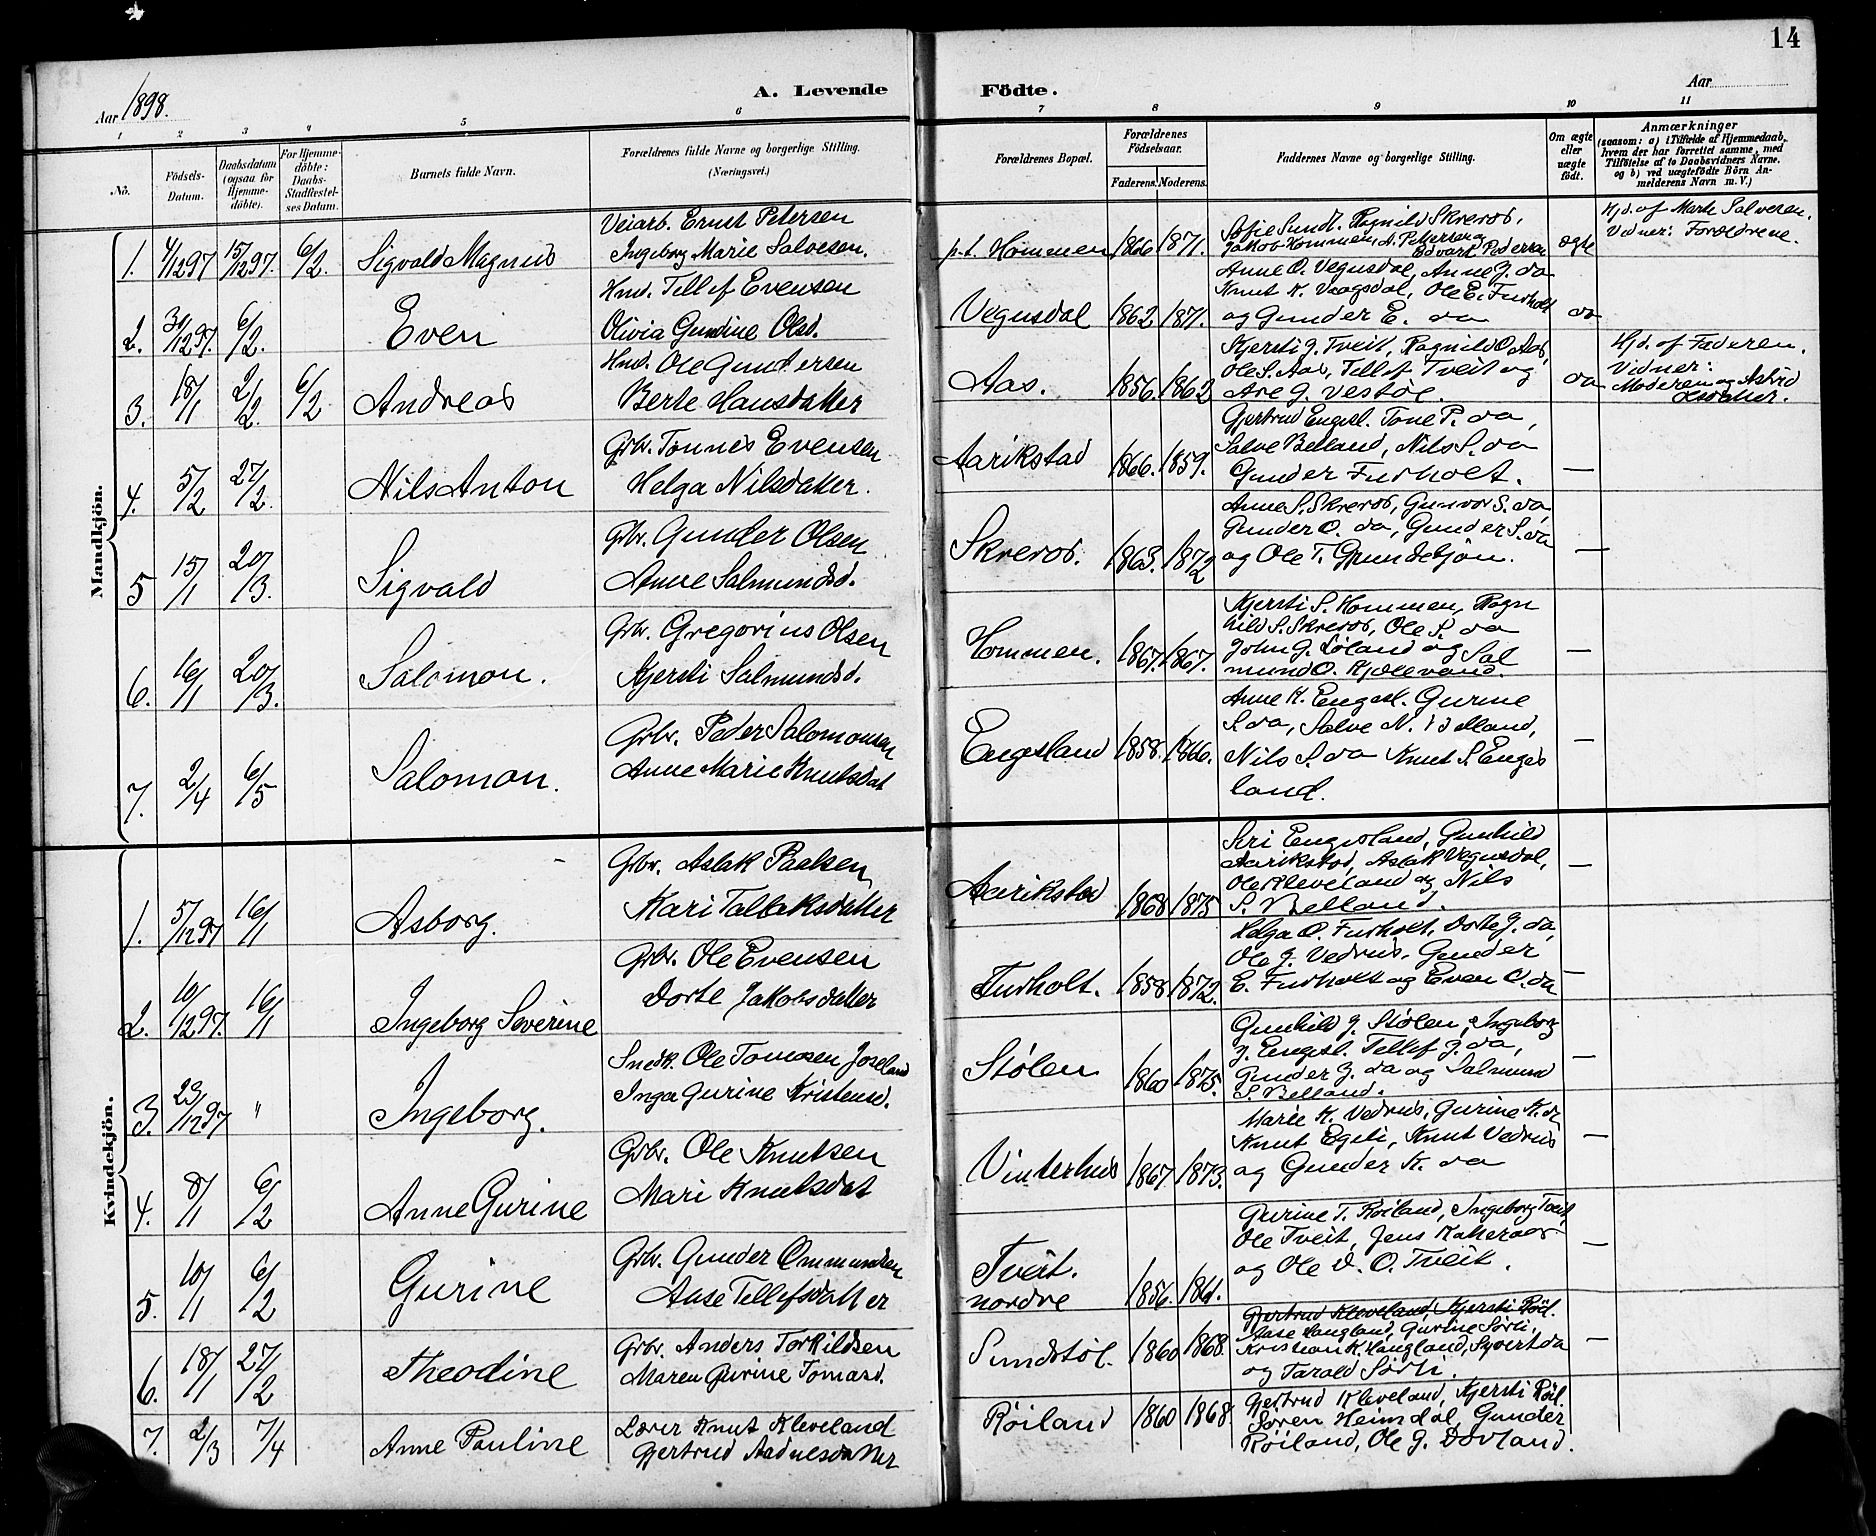 14
Aar 1898.
A. Levende Födte.
Aar
1 2 3 4 5 6 7 8 9 10 11
No.
Födsels-Datum.
Daabsdatum (ogsaa for Hjemme-döbte).
For Hjemme-döbte: Daabs-Stadfæstel-ses Datum.
Barnets fulde Navn.
Forældrenes fulde Navne og borgerlige Stilling.
(Næringsvei.)
Forældrenes Bopæl.
Forældrenes Födselsaar.
Faderens. Moderens.
Faddernes Navne og borgerlige Stilling.
Om ægte eller uægte födt.
Anmærkninger
(saasom: a) i Tilfælde af Hjemmedaab, hvem der har forrettet samme, med Tilföielse af to Daabsvidners Navne, og b) ved uægtefödte Börn An-melderens Navn m. V.)
Mandkjön.
1. 4/12 97 15/12 97. 6/2. Sigvald Magnus
Veiarb. Ernst Petersen
Ingeborg Marie Salvesen.
p.t. Hommen 1866 1871.
Sofie Sundt. Ragnild Skreros,
Jakob Hommen, A. Petersen og
Edvart Pedersen
ægte
Hjd. af Mark Salvesen.
Vidner: Forældrene.
2. 31/12 97. 6/2. Even
Hmd. Tellef Evensen
Olivia Gundine Olsd.
Vegusdal 1862. 1871.
Anne O. Vegusdal, Anne J. do
Knut K. Vaagsdal, Ole E. Furholt
og Gunder E. do
do
3. 18/1 2/2. 6/2 Andreas
Hmd. Ole Gundersen
Berte Hansdatter
Aas. 1856. 1862
Kjersti J. Tveit, Ragnild O. Aas,
Ole S. Aas, Tellef Tveit og
Are G. Vestöl.
do
Hjd. af Faderen.
Vidner:
Moderen og Astrid
Olsdatter.
4. 5/2 27/2. Nils Anton
Gbr. Tönnes Evensen
Helga Nilsdatter.
Aarikstad 1866. 1859.
Gjertrud Engesl. Tone P. do,
Salve Belland, Nils S. do
Gunder Furholt.
—
5 15/1 20/3. Sigvald
Gbr. Gunder Olsen
Anne Salmundsd.
Skreros. 1863. 1872
Anne S. Skreros, Gunvor S. do,
Gunder O. do, Gunder S. do
og Ole T. Grundetjön.
—
6. 16/1 20/3. Salomon.
Gbr. Gregorius Olsen
Kjersti Salmundsd.
Hommen. 1867. 1867.
Kjersti S. Hommen, Ragn
hild S. Skreros, Ole S. do
John G. Löland og Sal
mund O. Kjolevand.
—
7. 2/4 6/5 Salomon.
Gbr. Peder Salomonsen
Anne Marie Knutsdat
Engesland 1858. 1866.
Anne K. Engesl. Gurine
S. do, Salve N. Belland,
Nils S. do Knut S. Enges
land.
—
Kvindekjön.
1. 5/12 97 16/1 Asborg.
Gbr. Aslak Paalsen
Kari Tallaksdatter
Aarikstad 1868 1875
Siri Engesland, Gunhild
Aarikstad, Aslak Vegusdal,
Ole Kleveland og Nils
S. Belland.
—
2. 10/12 97. 16/1 Ingeborg Severine
Gbr. Ole Evensen
Dorte Jakobsdatter
Furholt. 1858 1872.
Helga O. Furholt, Dorte J. do,
Ole J. Vedrus. Gunder
E. Furholt og Even O. do
—
3. 23/12 97 " Ingeborg.
Snedk. Ole Tomosen Joseland
Inga Gurine Kristensd.
Stölen 1860 1875.
Gunhild J. Stölen, Ingeborg
J. Engesl. Tellef J. do,
Gunder J. do og Salmund
S. Belland.
—
4. 8/1 6/2 Anne Gurine
Gbr. Ole Knutsen
Mari Knutsdat
Vinterhus 1867. 1873.
Marie K. Vedrus, Gurine K. do
Knut Egeli, Knut Vedrus
og Gunder K. do
—
5. 10/1 6/2 Gurine
Gbr. Gunder Ommundsen
Aase Tellefsdatter
Tveit.
nordre 1856. 1861.
Gurine T. Röiland, Ingeborg Tveit,
Ole Tveit, Jens Kateraas
og Ole D. O. Tveit.
—
6. 18/1 27/2 Theodine
Gbr. Anders Torkildsen
Maren Gurine Tomasd.
Sundstöl. 1860 1868.
Gjertrud Kleveland, Kjersti Röil.
Aase Haugland, Gurine Sörli,
Kristian K. Haugland, Syvert do
og Tarald Sörli.
—
7. 2/3 7/4 Anne Pauline
Lærer Knut Kleveland
Gjertrud Aadnesdatter
Röiland 1860 1868
Gjertrud Kleveland, Kjersti Röil.
Sören Heimdal, Gunder
Röiland, Ole G. Dovland.